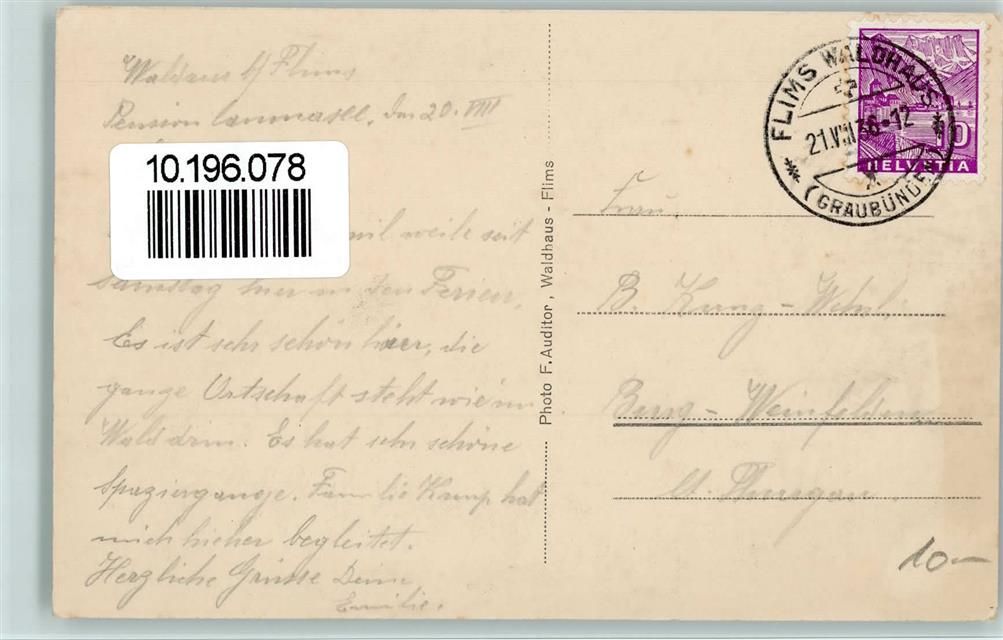 Waldhaus b/ Flims
Pension den 20. VIII
10.196.078
weile seit
Samstag hier in den Ferien.
Es ist sehr schön hier, die
ganze Ortschaft steht wie im
Wald drin. Es hat sehr schöne
Spaziergänge. Familie hat
mich hieher begleitet.
Herzliche Grüsse Deine
Emilie.
Photo F. Auditor, Waldhaus - Flims
FLIMS WALDHAUS
21.VIII 36-12
(GRAUBÜNDEN)
10
HELVETIA
Frau
B.
Burg - Weinfelden
Ct. Thurgau.
10-